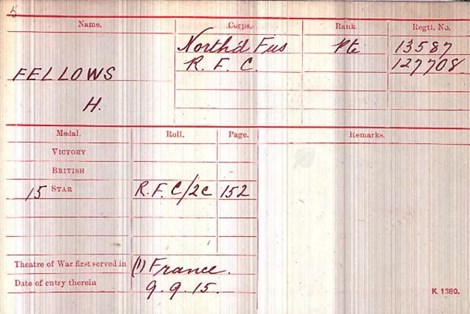 Name. Corps. Rank Regtl. No.
North'd Fus Pte 13587
R. F. C. 127708
FELLOWS
H.
Medal. Roll. Page. Remarks.
VICTORY
BRITISH
15 STAR R.F.C/2C 152
Theatre of War first served in (1) France.
Date of entry therein 9.9.15.
K 1380.